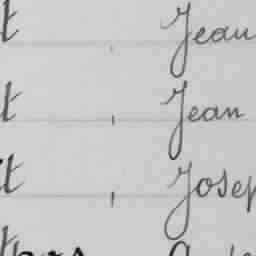 t Jean
t Jean
t Josep